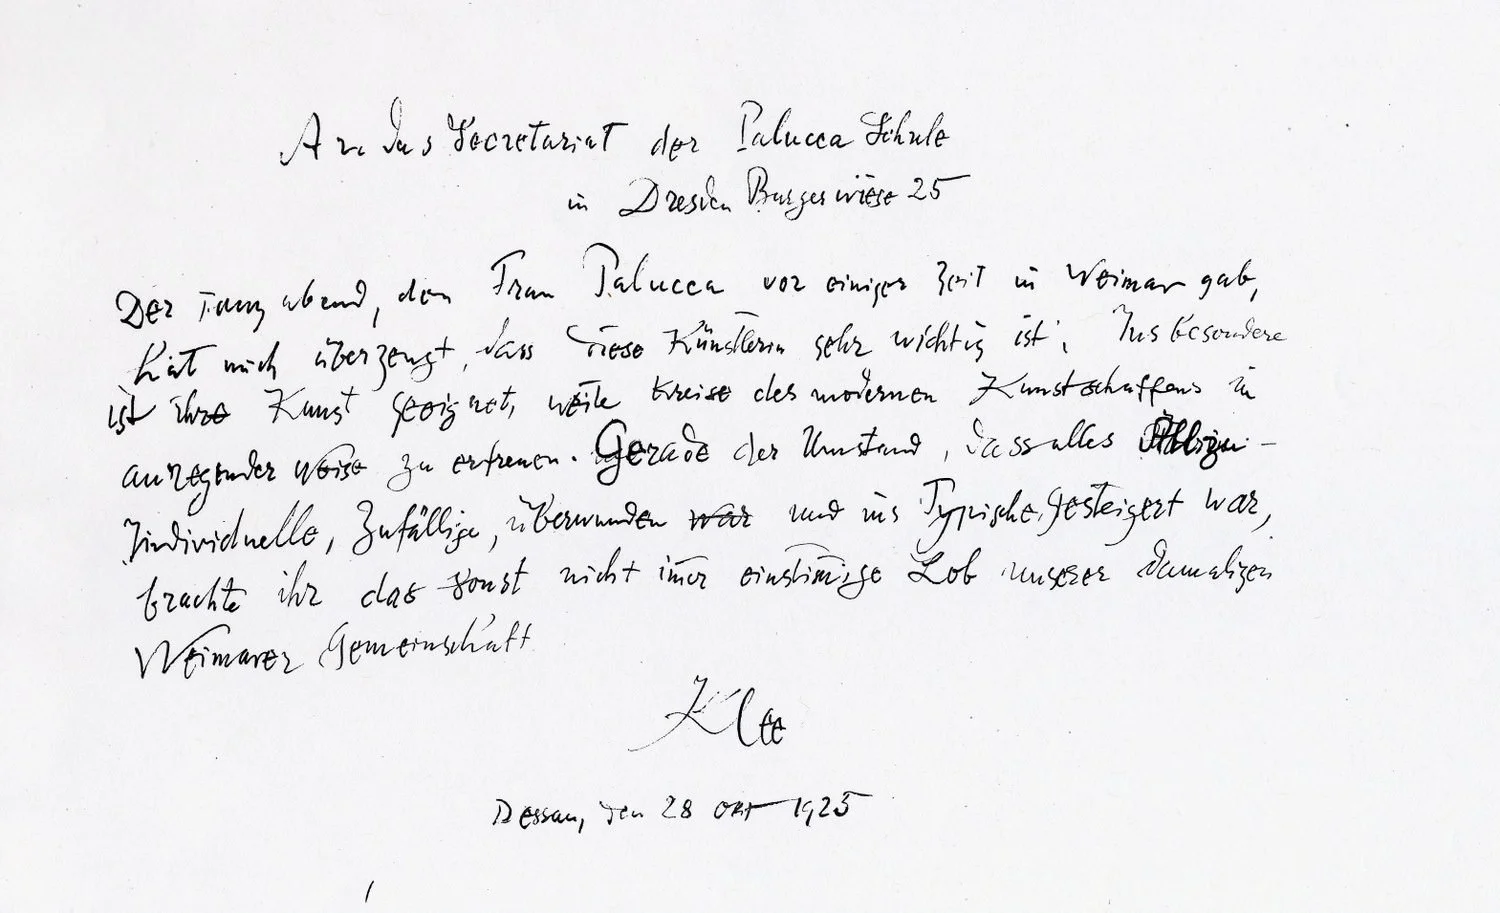 An das Secretariat der Palucca Schule
in Dresden Bürgerwiese 25
Der Tanzabend, den Frau Palucca vor einiger Zeit in Weimar gab,
hat mich überzeugt, dass diese Künstlerin sehr wichtig ist; Insbesondere
ist ihre Kunst geeignet, weite Kreise des modernen Kunstschaffens in
anregender Weise zu erfreuen. Gerade der Umstand, dass alles
Individuelle, Zufällige, überwunden war und ins Typische gesteigert war,
brachte ihr das sonst nicht imer einstimige Lob unserer damaligen
Weimarer Gemeinschaft
Klee
Dessau, den 28 Okt 1925